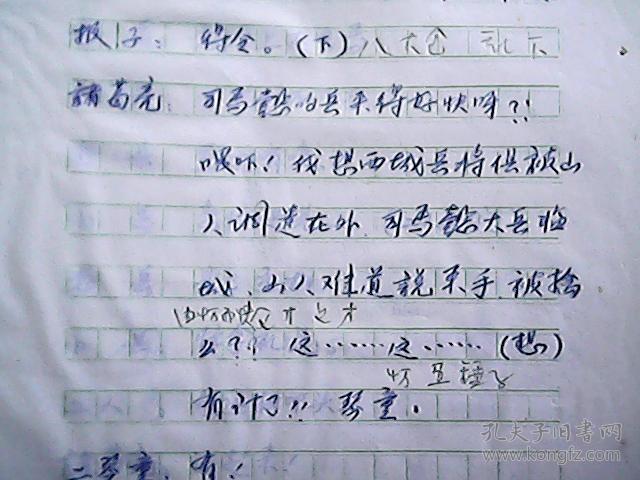 报子：得令。（下）八大仓
諸葛亮：司馬懿的兵来得好快呀？！
哦吓！我想西城兵将俱被山
人调造在外，司馬懿大兵临
城、山人难道説束手被擒
么？？这……这……（想）
有计了！！琴童。
二琴童：有！
孔夫子旧书网
www.kongfz.com